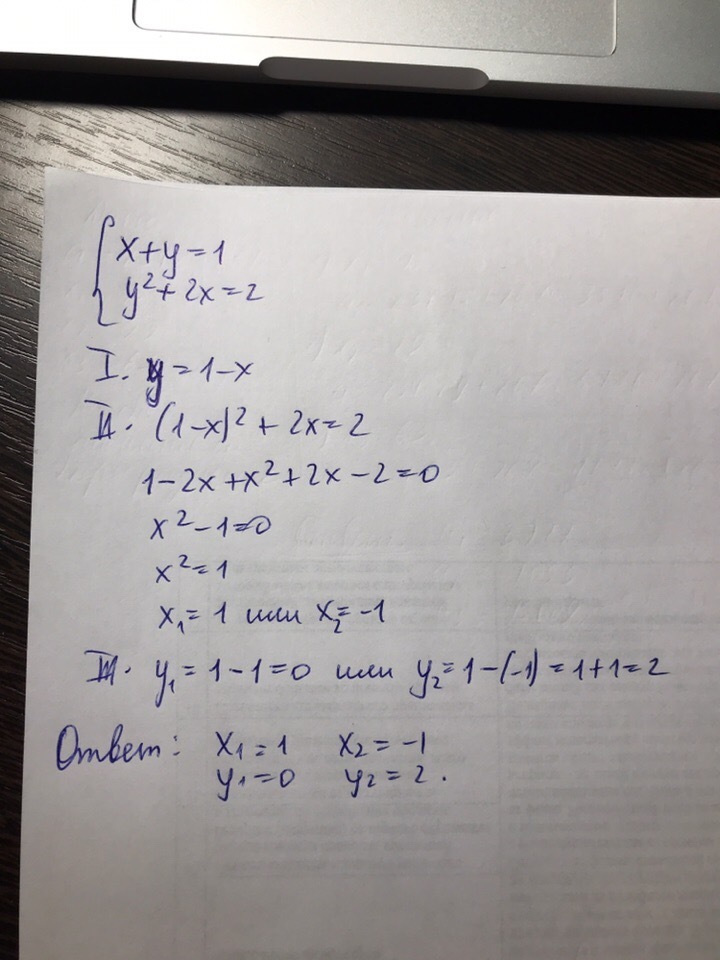 x+y=1
y²+2x=2
I. y=1-x
II. (1-x)²+2x=2
1-2x+x²+2x-2=0
x²-1=0
x²=1
x₁=1 или x₂=-1
III. y₁=1-1=0 или y₂=1-(-1)=1+1=2
Ответ: x₁=1 x₂=-1
y₁=0 y₂=2.